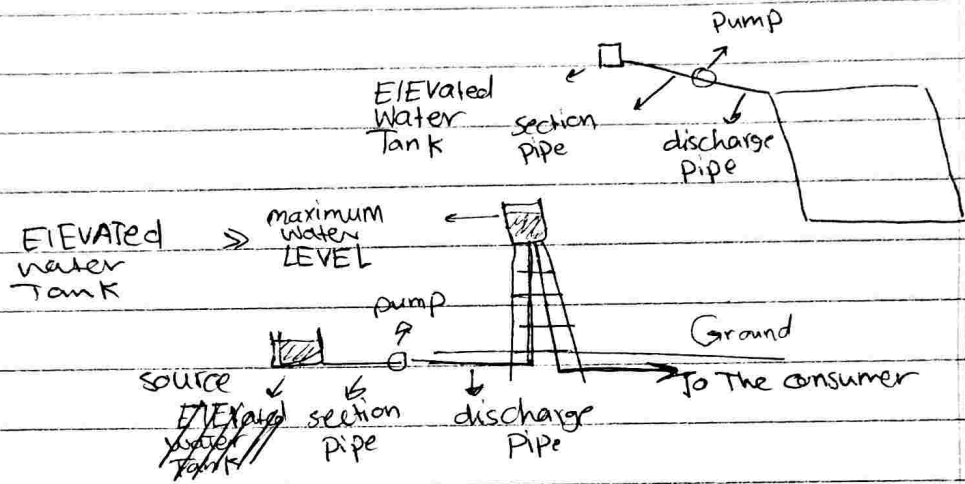 Pump
ElEVated
Water
Tank
section
pipe
discharge
pipe
ElEVATed
water
Tank
>> maximum
water
LEVEL
pump
Ground
source
To The consumer
ElEVated
water
Tank
section
pipe
discharge
Pipe